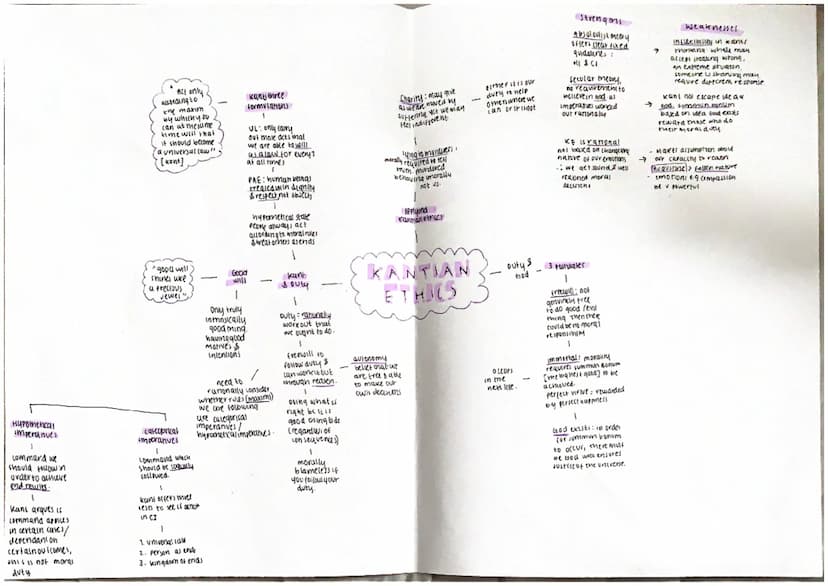 "Act only
according to
the maxim
by which you
can at the same
time will that
it should become
a universal law"
[Kant]
Kant's three
formulations
UL: only carry
out moral acts that
we are able to will
as a law for everyone
at all times
PAE: human beings
treated with dignity
& respect not objects
hypothetical state
people always act
according to moral rules
& treat others as ends
"good will
shines like
a precious
jewel"
Good
will
Only truly
intrinsically
good thing,
having good
motives &
intentions
need to
rationally consider
whether rules (maxims)
we are following
are categorical
imperatives /
hypothetical imperatives
Kant
& duty
duty: rationally
work out what
we ought to do.
freewill to
follow duty &
can work it out
through reason.
doing what is
right bc it is
good thing to do
(regardless of
consequences)
morally
blameless if
you follow your
duty.
autonomy
belief that we
are free & able
to make our
own decisions
Hypothetical
imperatives
command we
should follow in
order to achieve
end results.
Kant argues is
command applies
in certain cases/
dependant on
certain outcomes,
this is not moral
duty
Categorical
imperatives
Command which
should be logically
followed.
Kant offers three
tests to see if action
is CI
1. universal law
2. person as ends
3. kingdom of ends
KANTIAN
ETHICS
Applying
Kantian ethics
lying to murderers:
morally required to tell
truth. murderer
behaving immorally
not us.
Charity: may give
as we are moved by
suffering yet we may
feel indifferent
either it is our
duty to help
others where we
can or it is not
Strengths
absolutist theory
offers clear fixed
guidelines:
HI & CI
Secular theory,
no requirement to
believe in God as
imperatives worked
out rationally
KE is rational
not based on changing
nature of our emotions
∴ we get sound & well
reasoned moral
decisions
Weaknesses
inflexibility in Kant/
immoral while may
accept stealing wrong,
in extreme situation,
someone is starving may
require different response
Kant not escape idea of
God, summum bonum
based on idea God exists
reward those who do
their moral duty
- makes assumption about
our capacity to reason
[Augustine] fallen nature
- emotions e.g. compassion
be v powerful
Duty &
God
3 Postulates
Freewill: not
genuinely free
to do good / evil
thing then there
could be no moral
responsibility
immortal: morality
requires summum bonum
[the highest good] to be
achieved.
perfect virtue: rewarded
by perfect happiness
occurs
in the
next life.
God exists: in order
for summum bonum
to occur, there must
be God who ensures
justice of the universe.